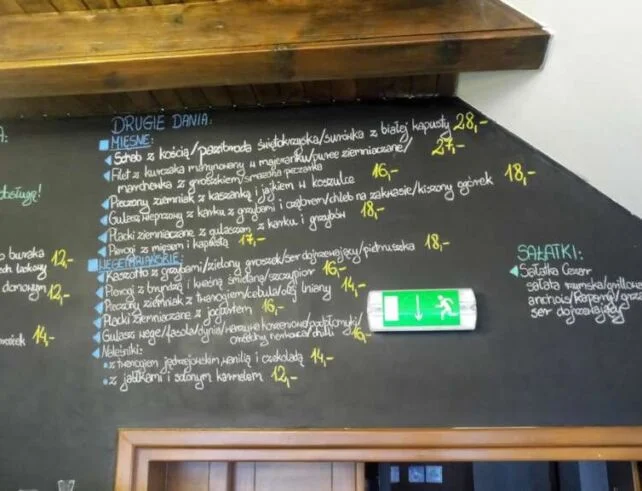 DRUGIE DANIA:
MIĘSNE:
Schab z kością/pazibroda świętokrzyska/surówka z białej kapusty 28,-
Filet z kurczaka marynowany w majeranku/puree ziemniaczane/ 27,-
marchewka z groszkiem/smażona pieczarka
Pieczony ziemniak z kaszanką i jajkiem w koszulce 16,-
Gulasz wieprzowy z karku z grzybami i cząbrem/chleb na zakwasie/kiszony ogórek 18,-
Placki ziemniaczane z gulaszem z karku i grzybów 18,-
Pierogi z mięsem i kapustą 17,-
WEGETARIAŃSKIE:
Kaszotto z grzybami/zielony groszek/ser dojrzewający/pietruszka 18,-
Pierogi z bryndzą i kwaśną śmietaną/szczypior 16,-
Pieczony ziemniak z twarogiem/cebula/olej lniany 14,-
Placki ziemniaczane z jogurtem 16,-
Gulasz wege/fasola/dynia/ 16,-
Naleśniki:
z twarogiem jędrzejowskim,wanilią i czekoladą 14,-
z jabłkami i solonym karmelem 12,-
SAŁATKI:
Sałatka Cezar
sałata rzymska/grillowa
anchois/kapary/grza
ser dojrzewający
buraka 12,-
12,-
14,-